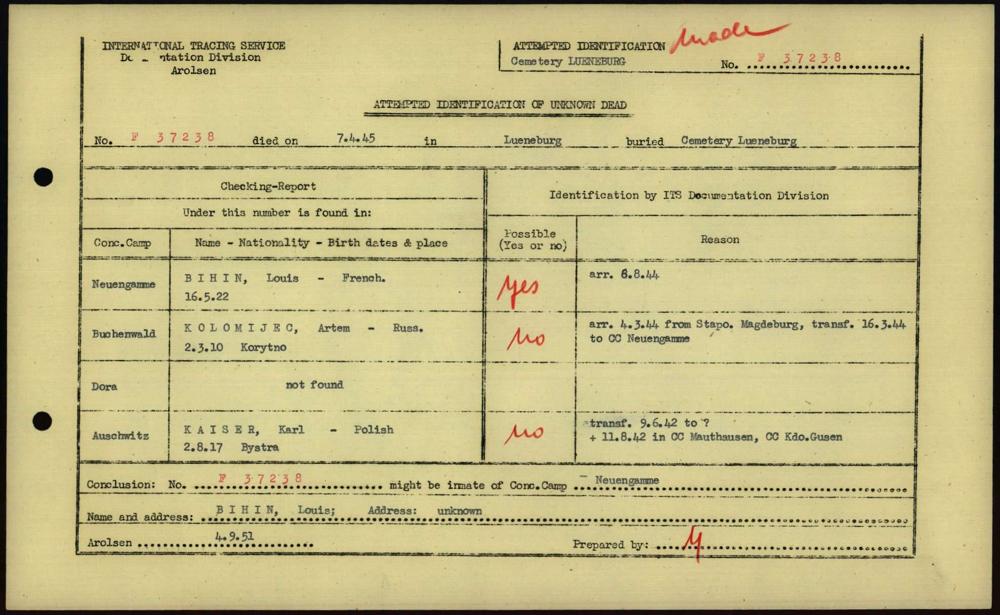 INTERNATIONAL TRACING SERVICE
Documentation Division
Arolsen
ATTEMPTED IDENTIFICATION made
Cemetery LUENEBURG No. F 37238
ATTEMPTED IDENTIFICATION OF UNKNOWN DEAD
No. F 37238 died on 7.4.45 in Lueneburg buried Cemetery Lueneburg
Checking-Report
Identification by ITS Documentation Division
Under this number is found in:
Conc.Camp Name - Nationality - Birth dates & place
Possible
(Yes or no)
Reason
Neuengamme
BIHIN, Louis - French.
16.5.22
yes
arr. 8.8.44
Buchenwald
KOLOMIJEC, Artem - Russ.
2.3.10 Korytno
no
arr. 4.3.44 from Stapo. Magdeburg, transf. 16.3.44
to CC Neuengamme
Dora not found
Auschwitz
KAISER, Karl - Polish
2.8.17 Bystra
no
transf. 9.6.42 to ?
+ 11.8.42 in CC Mauthausen, CC Kdo.Gusen
Conclusion: No. F 37238 might be inmate of Conc.Camp - Neuengamme
Name and address: BIHIN, Louis; Address: unknown
Arolsen 4.9.51 Prepared by: